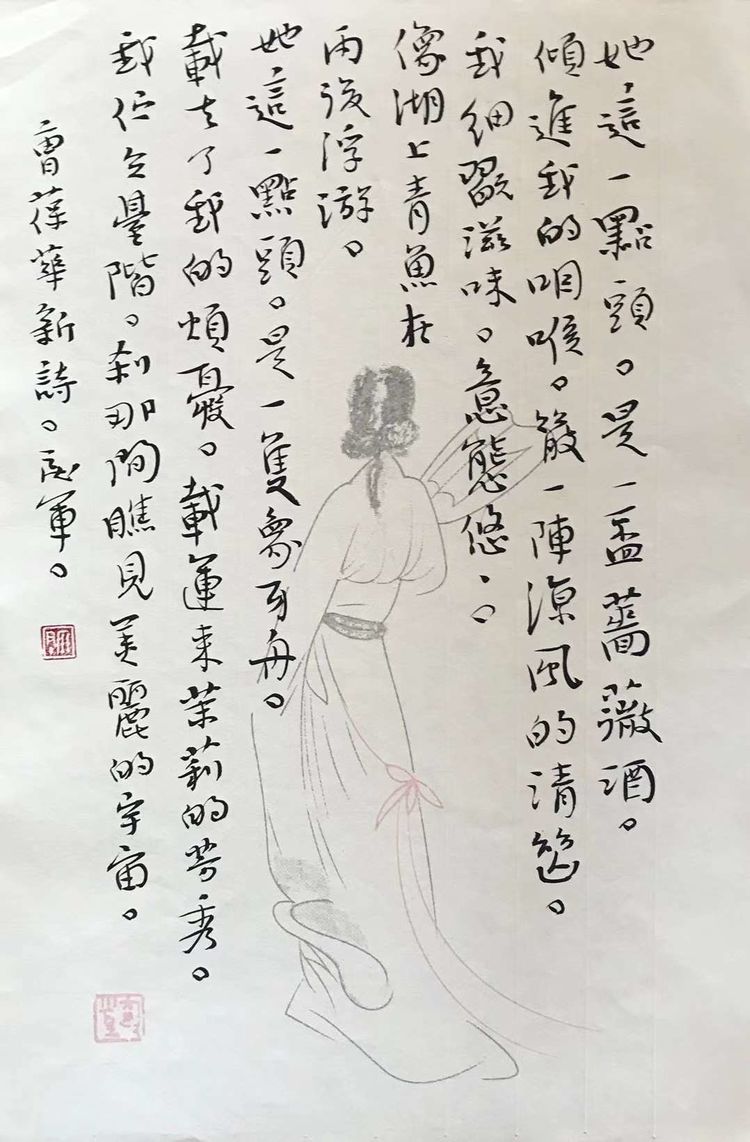 她這一點頭。是一盃薔薇酒。
傾進我的咽喉。散一陣涼風的清
我細嚼滋味。意態悠悠。
像湖上青魚在
雨後浮游。
她這一點頭。是一隻象牙舟。
載去了我的煩憂。載運來茉莉的芬秀。
我佇立臺階。刹那間瞧見美麗的宇宙。
曹葆華新詩。軍。